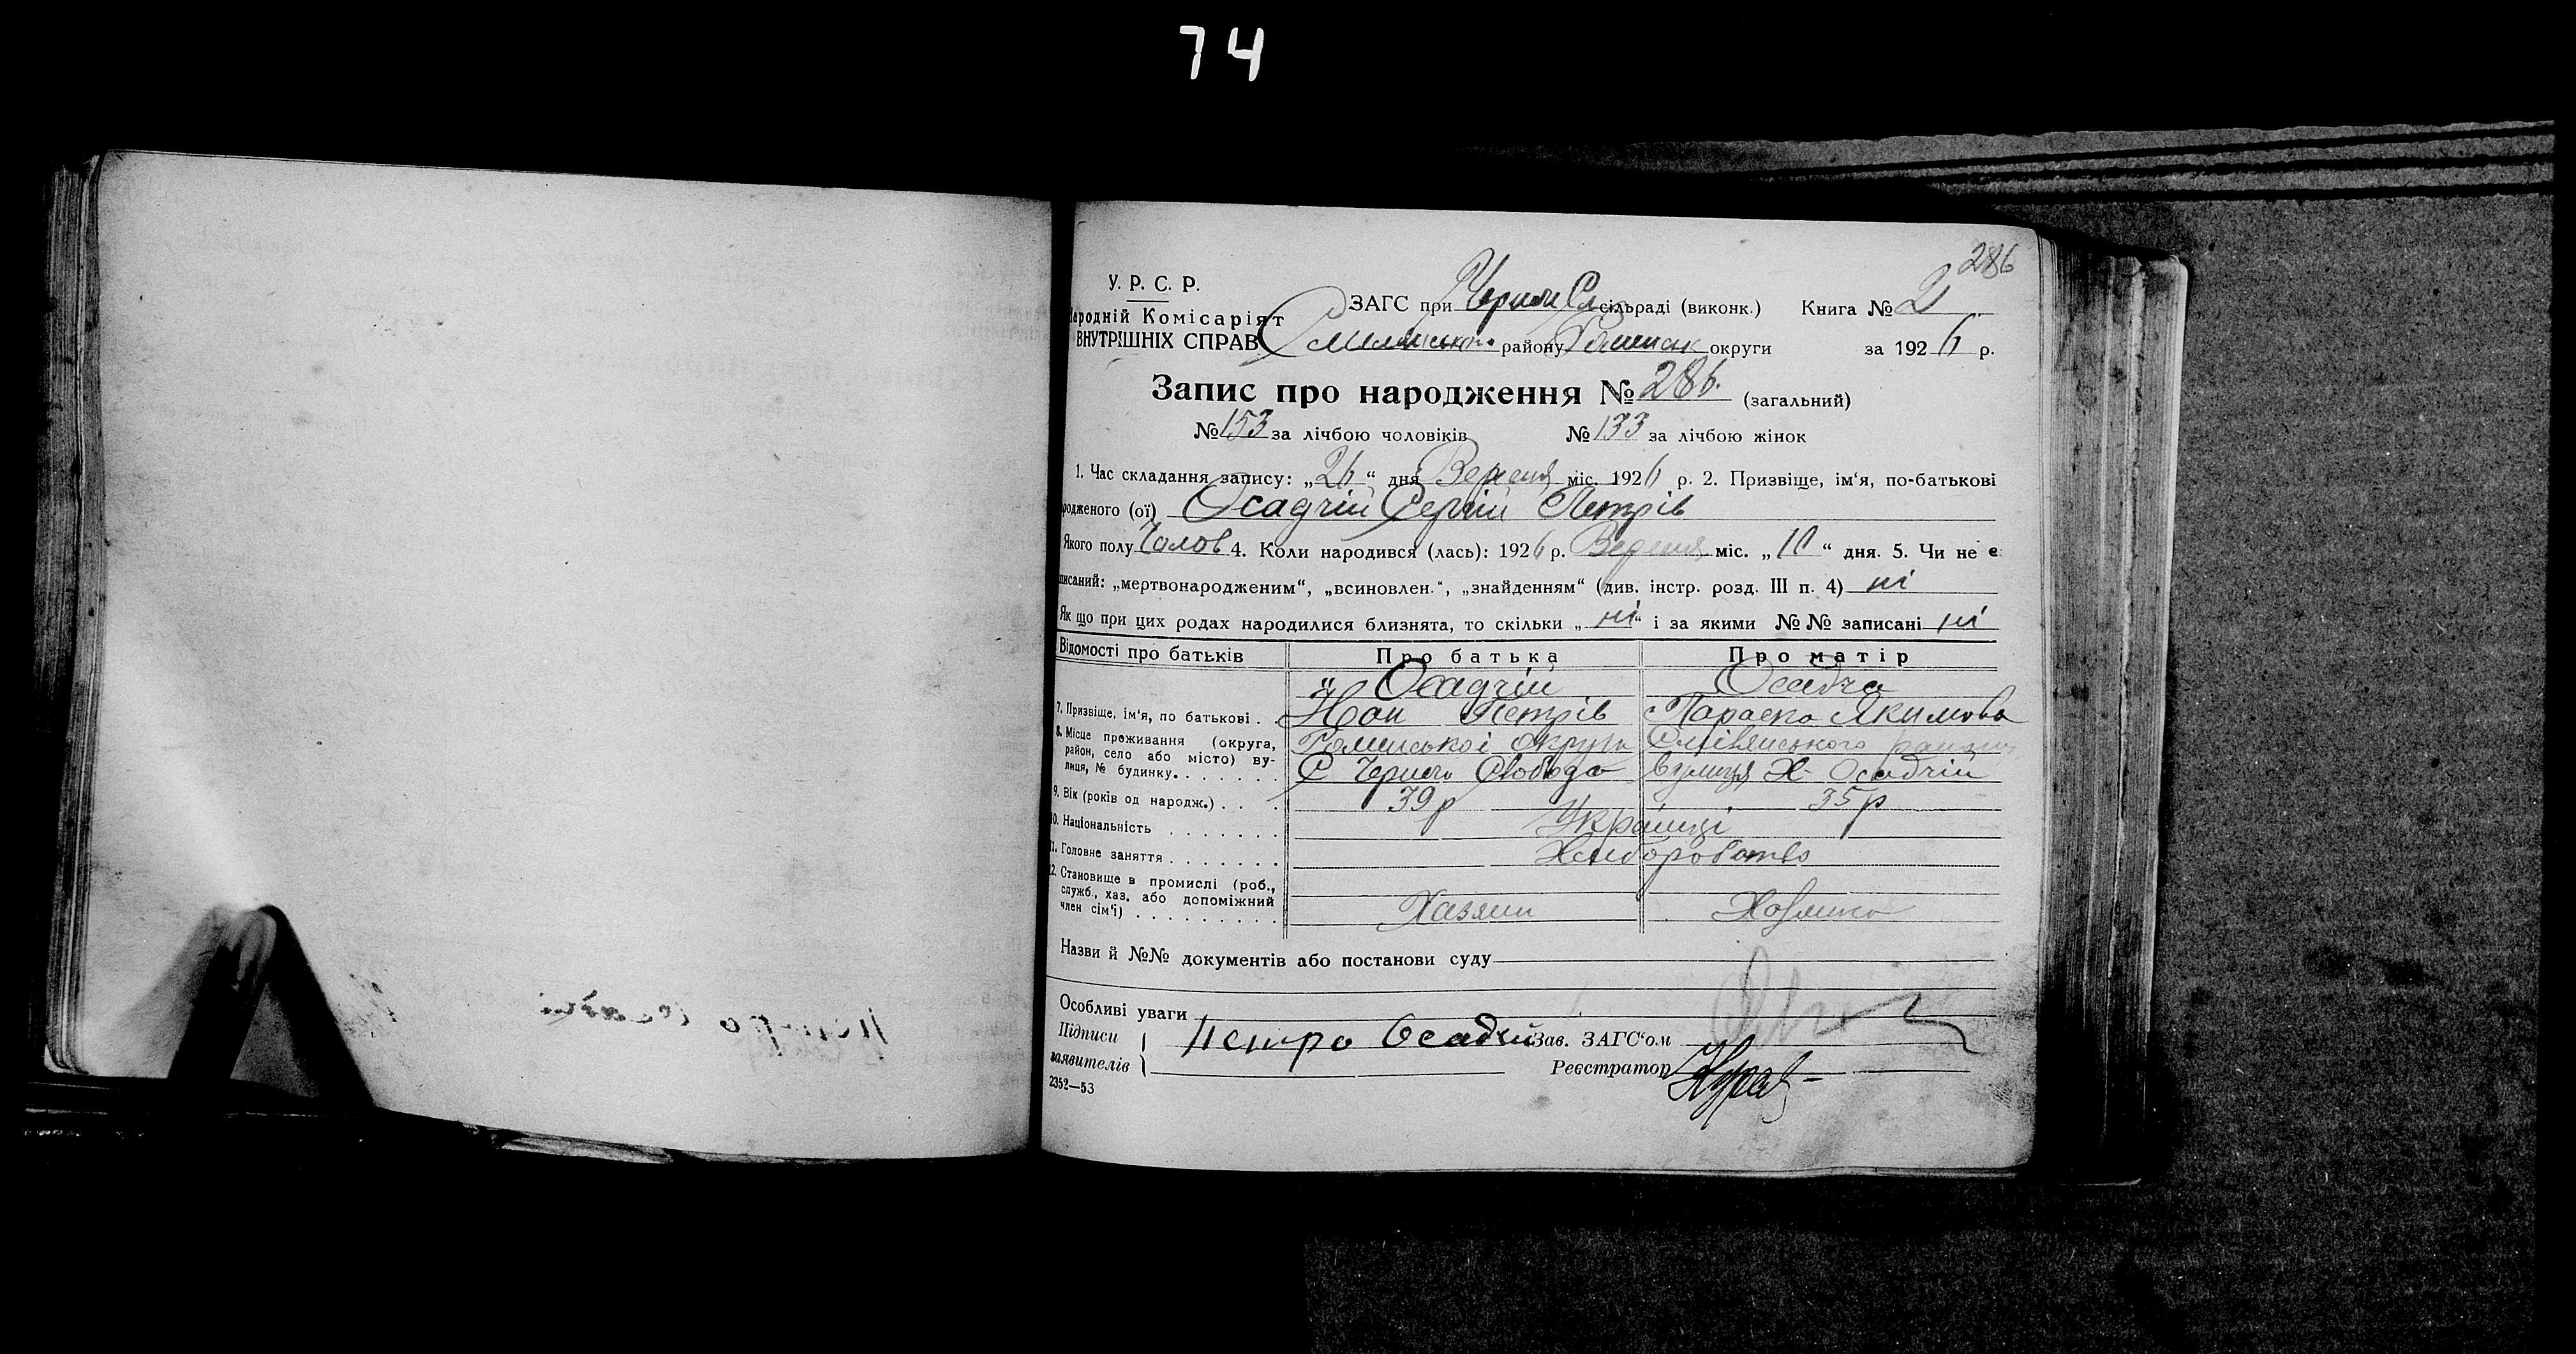 74
286
У. Р. С. Р.
Народній Комісаріят
ВНУТРІШНІХ СПРАВ
ЗАГС при Черноі Сл сільраді (виконк.) Книга № 2
району Роменськ округи за 1926 р.
Запис про народження № 286. (загальний)
№ 153 за лічбою чоловіків № 133 за лічбою жінок
1. Час складання запису: „26“ дня Вересня міс. 1926 р. 2. Призвіще, ім‘я, по-батькові
родженого (ої) Осадчій Сергій Петрів
Якого полу Чолов 4. Коли народився (лась): 1926 р. Вересня міс. „10“ дня. 5. Чи не є
писаний: „мертвонародженим“, „всиновлен.“, „знайденням“ (див. інстр. розд. III п. 4) ні
Як що при цих родах народилися близнята, то скільки „ні“ і за якими №№ записані ні
Відомості про батьків Про батька Про матір
Осадчій Осадча
7. Призвіще, ім‘я, по батькові . . Петрів Параска Якимова
8. Місце проживання (округа, район, село або місто) вулиця, № будинку. . . . . . .
Роменськоі округи Смілянського району
С Черноа Слобода вулиця Х. Осадчій
9. Вік (років од народж.) . . . 39 р 35 р
10. Національність . . . . . . . Украінці
11. Головне заняття . . . . . . . Хлиборобство
12. Становище в промислі (роб., служб., хаз. або допоміжний член сім‘ї) . . . . . . . . .
Хазяин Хозяика
Назви й №№ документів або постанови суду
Особливі уваги
Підписи заявителів Петро Осадчий Зав. ЗАГС‘ом
Реєстратор
2352—53